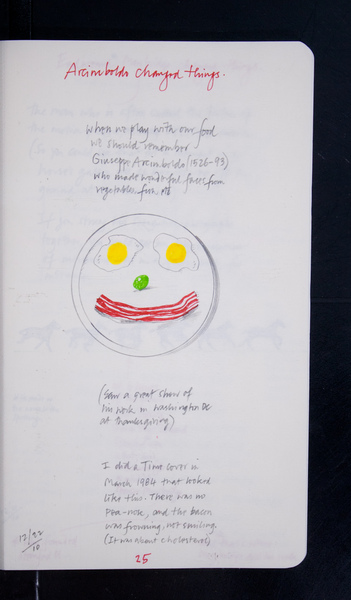 Arcimboldo changed things.
When we play with our food
we should remember
Giuseppe Arcimboldo (1526-93)
who made wonderful faces from
vegetables, fish, etc
(Saw a great show of
his work in Washington DC
at thanksgiving)
I did a Time cover in
March 1984 that looked
like this. There was no
pea-nose, and the bacon
was frowning, not smiling.
(It was about cholesterol)
12/22
10
25